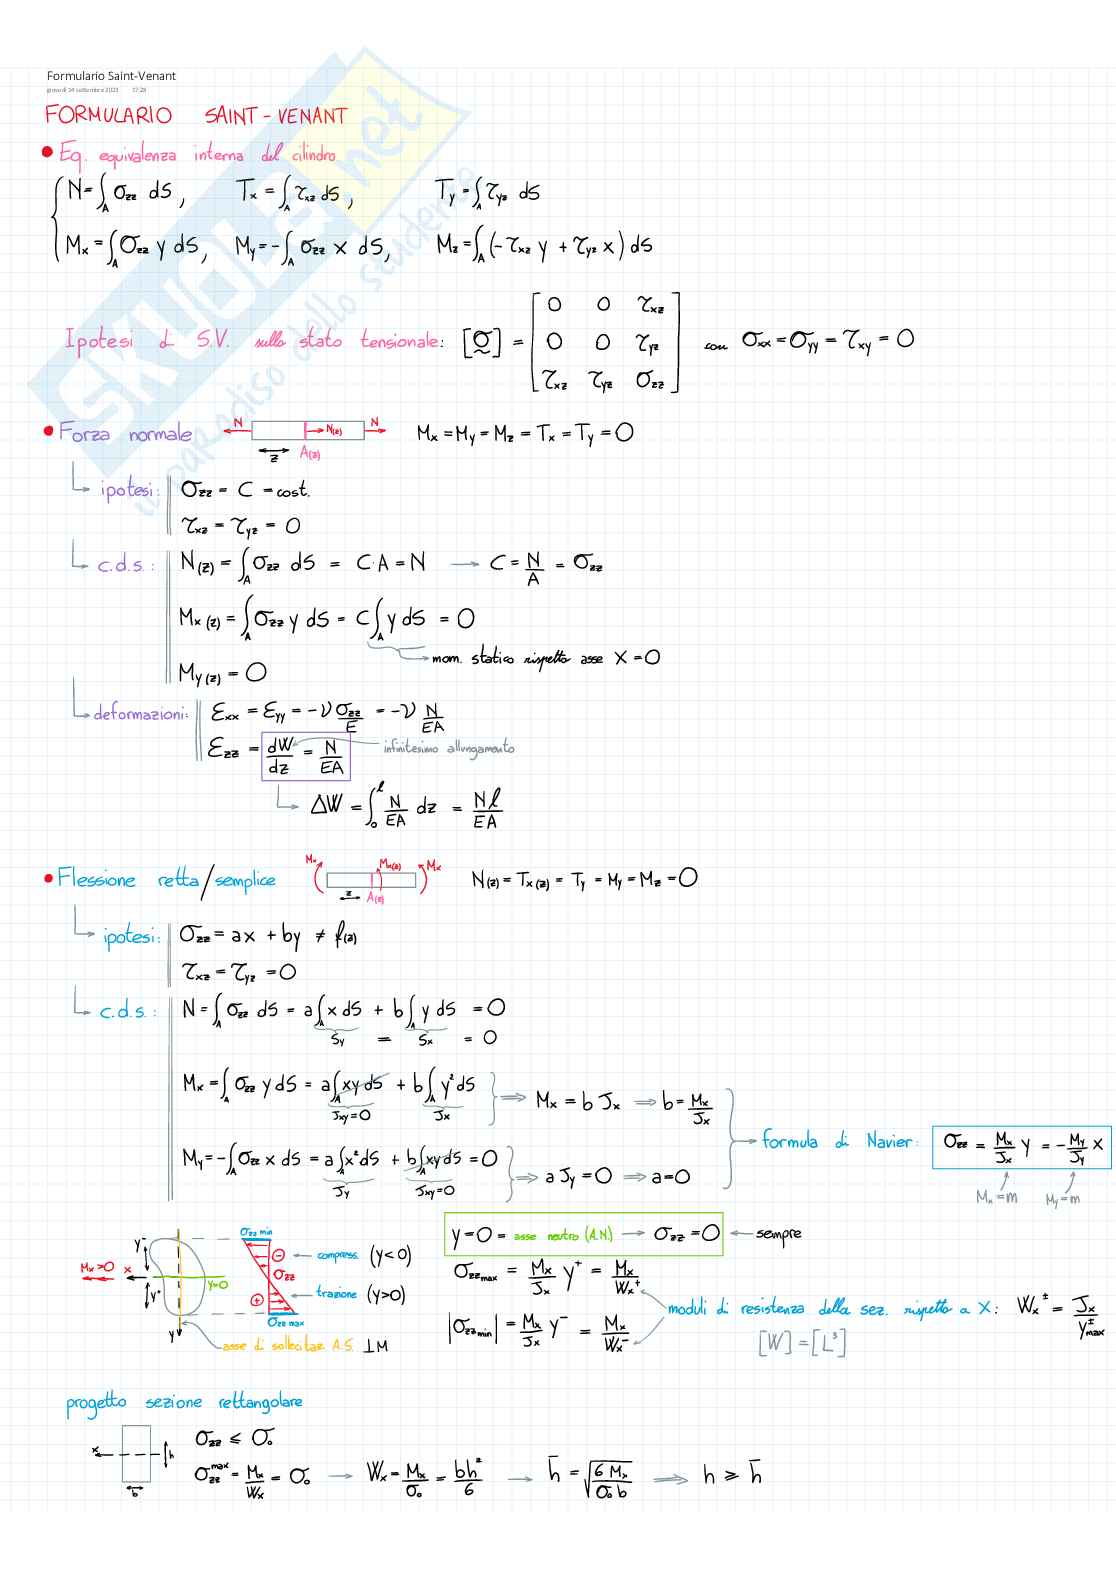 Formulario Saint-Venant
giovedì 14 settembre 2023 17:28
FORMULARIO SAINT-VENANT
• Eq. equivalenza interna del cilindro
N = ∫_A σzz dS, Tx = ∫_A τxz dS, Ty = ∫_A τyz dS
Mx = ∫_A σzz y dS, My = -∫_A σzz x dS, Mz = ∫_A (-τxz y + τyz x) dS
Ipotesi d S.V. sullo stato tensionale: [σ] = [0 0 τxz
0 0 τyz
τxz τyz σzz] con σxx = σyy = τxy = 0
• Forza normale N N(z) N z A(z) Mx = My = Mz = Tx = Ty = 0
ipotesi: σzz = C = cost.
τxz = τyz = 0
c.d.s.: N(z) = ∫_A σzz dS = C·A = N → C = N/A = σzz
Mx(z) = ∫_A σzz y dS = C ∫_A y dS = 0
mom. statico rispetto asse X = 0
My(z) = 0
deformazioni: εxx = εyy = -ν σzz/E = -ν N/EA
εzz = dW/dz = N/EA infinitesimo allungamento
ΔW = ∫_0^l N/EA dz = Nl/EA
• Flessione retta/semplice Mx Mx(z) Mx z A(z) N(z) = Tx(z) = Ty = My = Mz = 0
ipotesi: σzz = ax + by ≠ f(z)
τxz = τyz = 0
c.d.s.: N = ∫_A σzz dS = a ∫_A x dS + b ∫_A y dS = 0
Sy = Sx = 0
Mx = ∫_A σzz y dS = a ∫_A xy dS + b ∫_A y² dS ⇒ Mx = b Jx ⇒ b = Mx/Jx
Jxy = 0 Jx
formula di Navier: σzz = Mx/Jx y = -My/Jy x
My = -∫_A σzz x dS = a ∫_A x² dS + b ∫_A xy dS = 0 ⇒ a Jy = 0 ⇒ a = 0
Jy Jxy = 0
Mx = m My = m
y = 0 = asse neutro (A.N.) → σzz = 0 ← sempre
Mx > 0 x y⁻ y⁺ y = 0 y
σzz min
⊖ ← compress. (y<0)
σzz
⊕ ← trazione (y>0)
σzz max
asse di sollecitaz. A.S. ⊥M
σzz max = Mx/Jx y⁺ = Mx/Wx⁺
|σzz min| = Mx/Jx y⁻ = Mx/Wx⁻
moduli di resistenza della sez. rispetto a X: Wx± = Jx/y±max
[W] = [L³]
progetto sezione rettangolare
x h b
σzz ≤ σ₀
σzz max = Mx/Wx = σ₀ → Wx = Mx/σ₀ = bh²/6 → h̄ = √(6 Mx/σ₀ b) ⇒ h ≥ h̄
SKUOLA.net
il paradiso dello studente